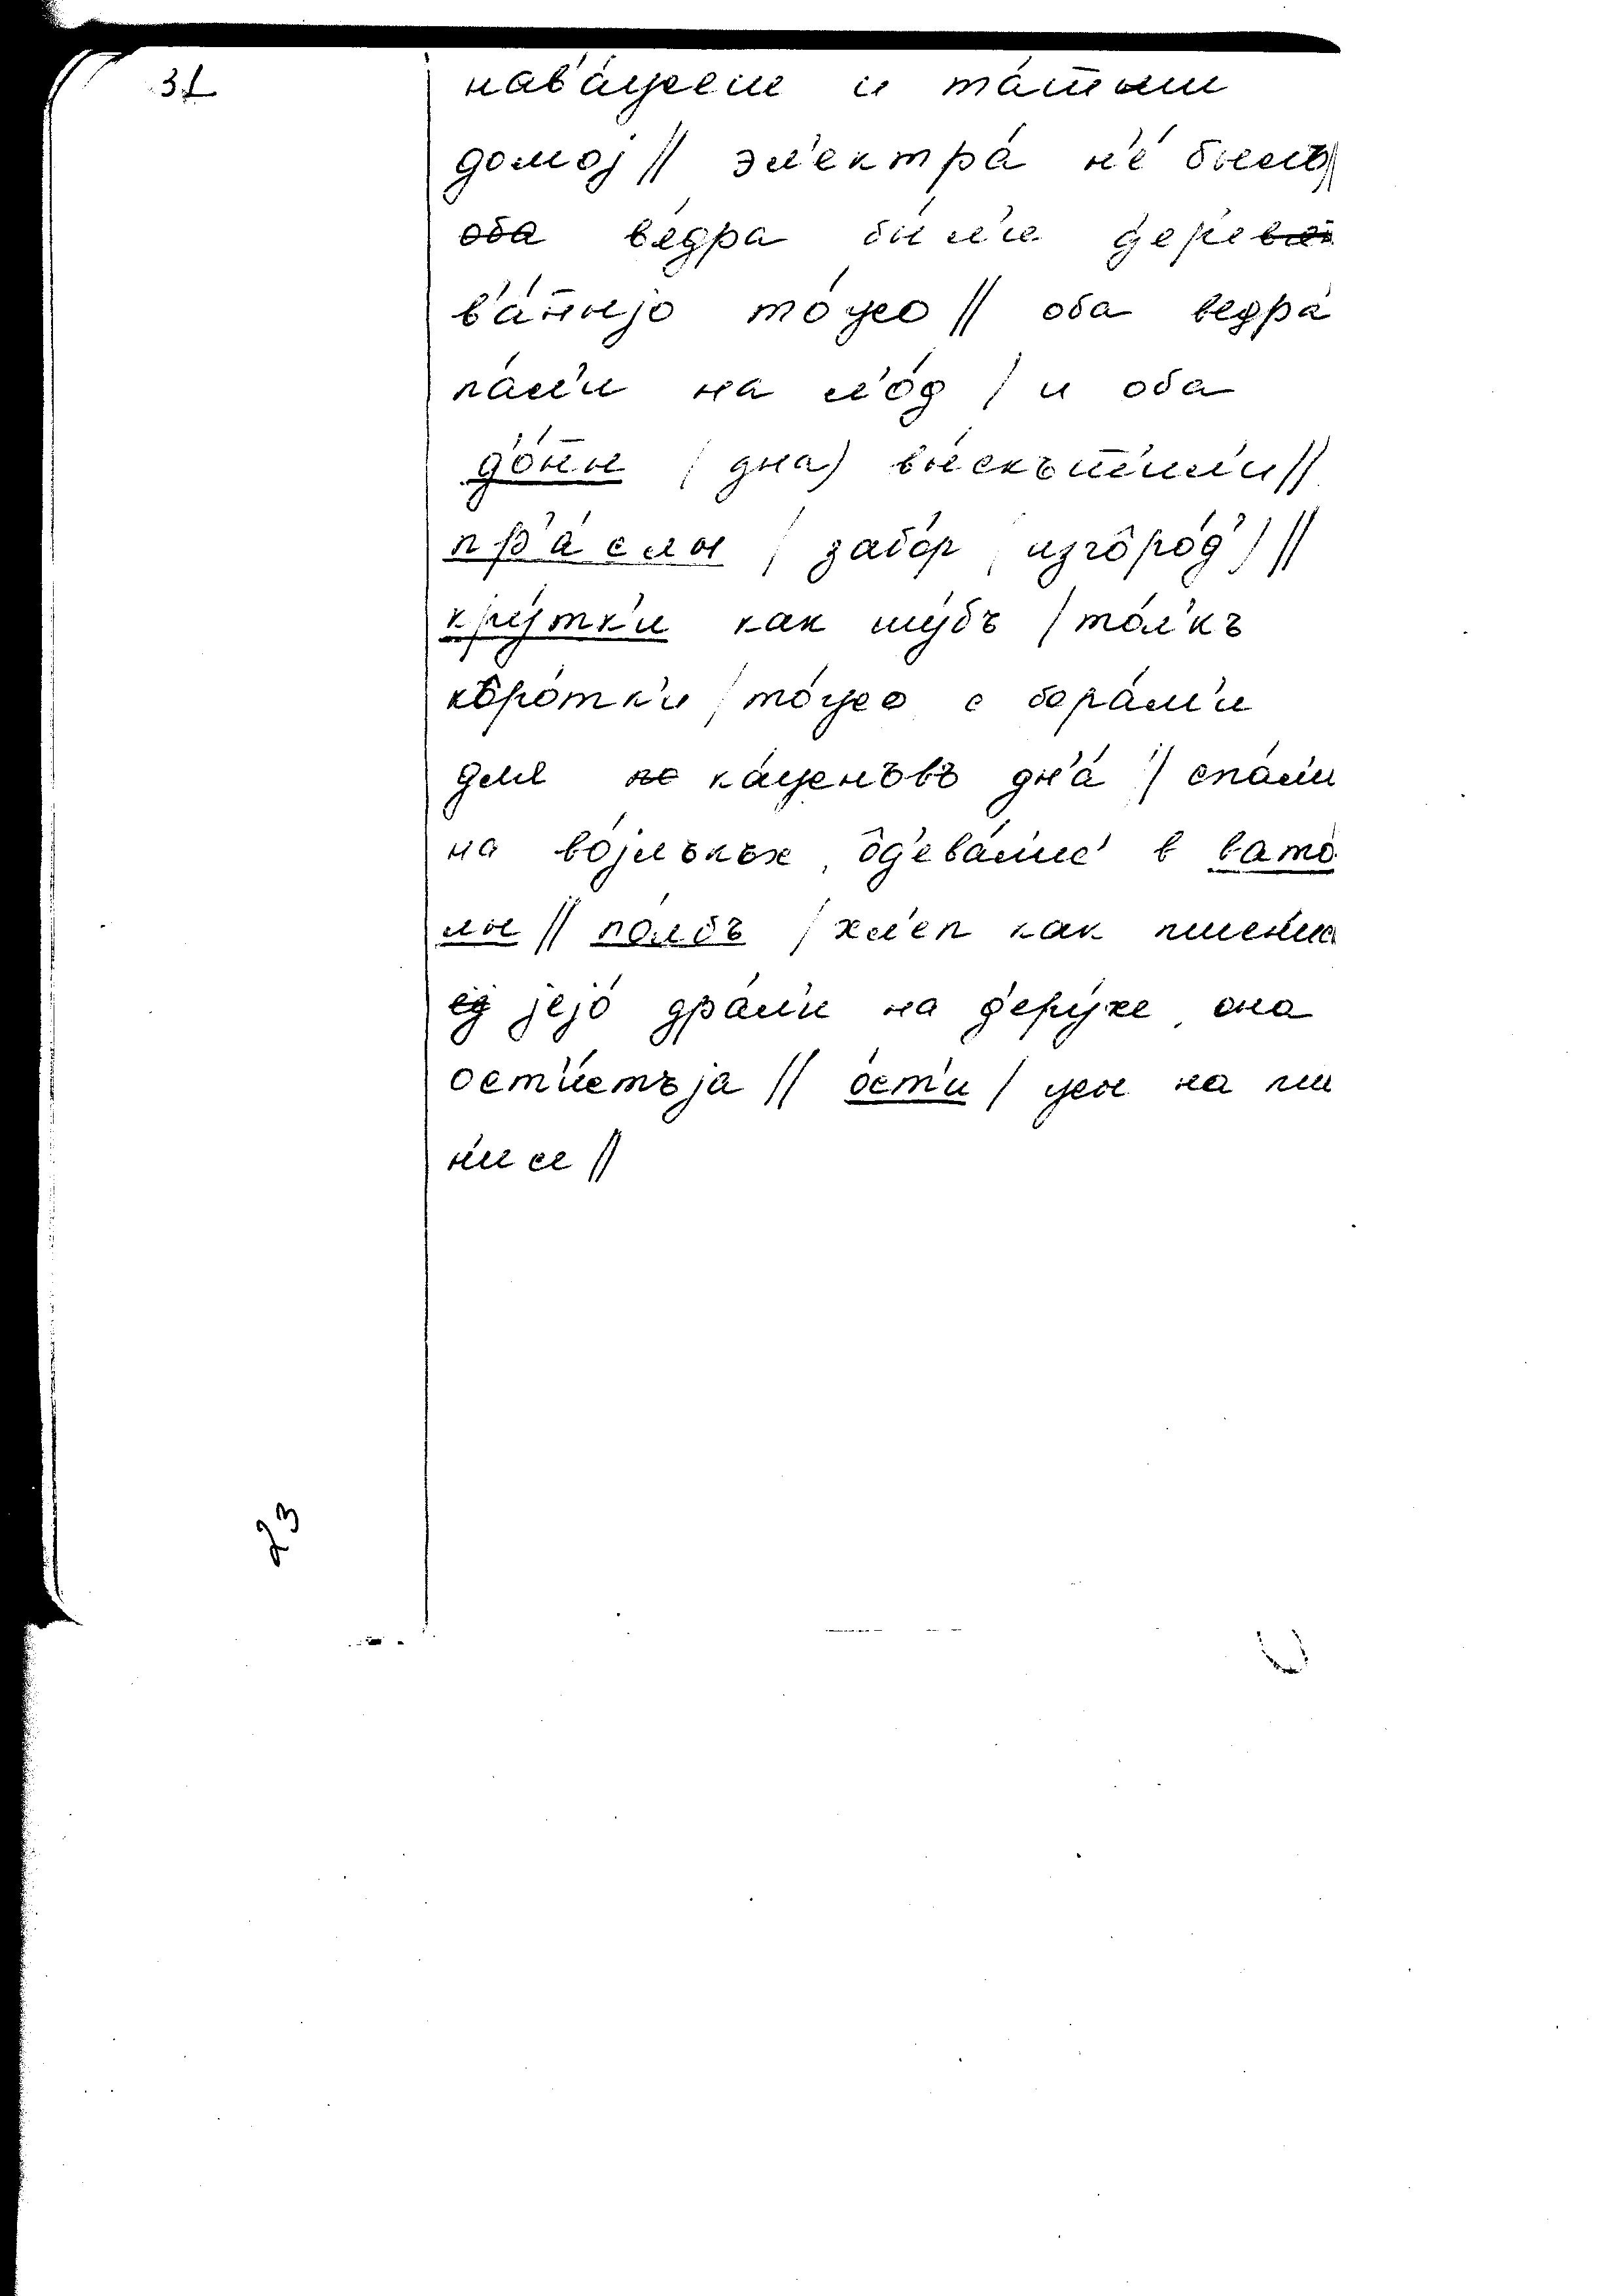 31
нав'а́жеш и та́т̅ыш
домој // эл'ектра́ н'е́ былъ//
оба в'едра бы́л'и д'ер'ев
в'а́н̅ыјо то́жо // оба ведра́
па́л'и на л'о́д / и оба
д'о́н̅ы (дна) вы́скът̅ил'и //
пр'а́слы / забо́р, изгоро́д') //
кру́тк'и как шу́бъ / то́л'къ
коро́тк'и / то́жо с бора́м'и
для ка́женъвъ дн'а́ // спа́ли
на во́јлъкъх, од'ева́лис' в вато́
лы // по́лбъ / хл'еп как пшени́ца
јејо́ дра́л'и на д'еру́хе, она
ост'и́стъја // о́ст'и / усы на пш
23